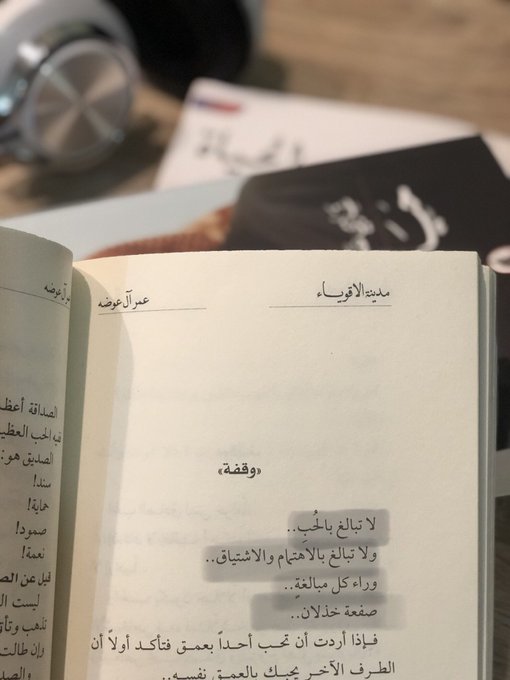 الحياة
مدينة الاقوياء
عمر آل عوضه
«وقفة»
لا تبالغ بالحُبِ..
ولا تبالغ بالاهتمام والاشتياق..
وراء كل مبالغةٍ..
صفعة خذلان..
فإذا أردت أن تحب أحداً بعمق فتأكد أولاً أن
الطرف الآخر يحبك بالعمق نفسه..
آل عوضه
الصداقة أعظ
فيه الحب العظيـ
الصديق هو:
سند!
حماية!
صمود!
نعمة!
قيل عن الصـ
ليست الـ
تذهب وتأتـ
وإن طالت
والصد